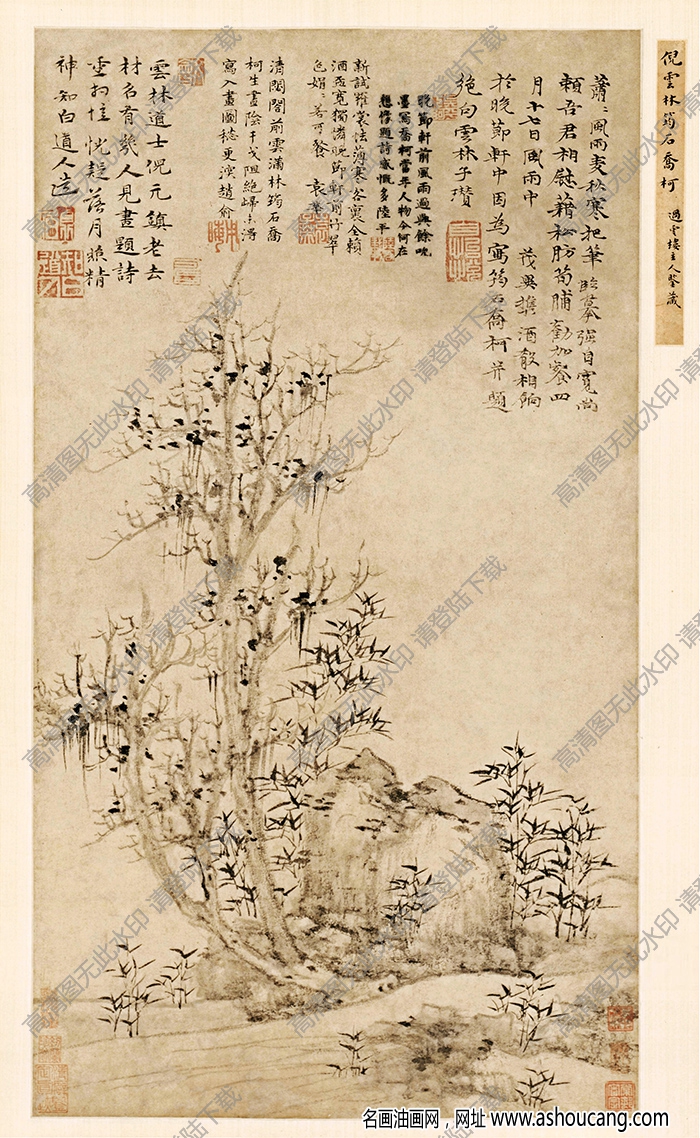 倪雲林筠石喬柯 過雲樓主人鑒藏
蕭〻風雨麥秋寒把筆臨摹強自寬尚
賴吾君相慰藉松肪筍脯勸加餐四
月十七日風雨中 茂異攜酒殽相餉
於晚節軒中因為寫筠石喬柯并題
絕句雲林子瓚
晚節軒前風雨過興餘呪
墨寫喬柯當年人物今何在
想像題詩感慨多陸平
新試羅裳怯薄寒客窗全賴
酒盃寬獨憐晚節軒前竹翠
色娟〻若可餐 袁華
清閟閣前雲滿林筠石喬
柯生晝陰干戈阻絕歸未得
寫入畫圖愁更深趙俞
雲林道士倪元鎮老去
材名有幾人見畫題詩
恍疑落月照精
神知白道人
高清图无此水印 请登陆下载
名画油画网，网址 www.ashoucang.com